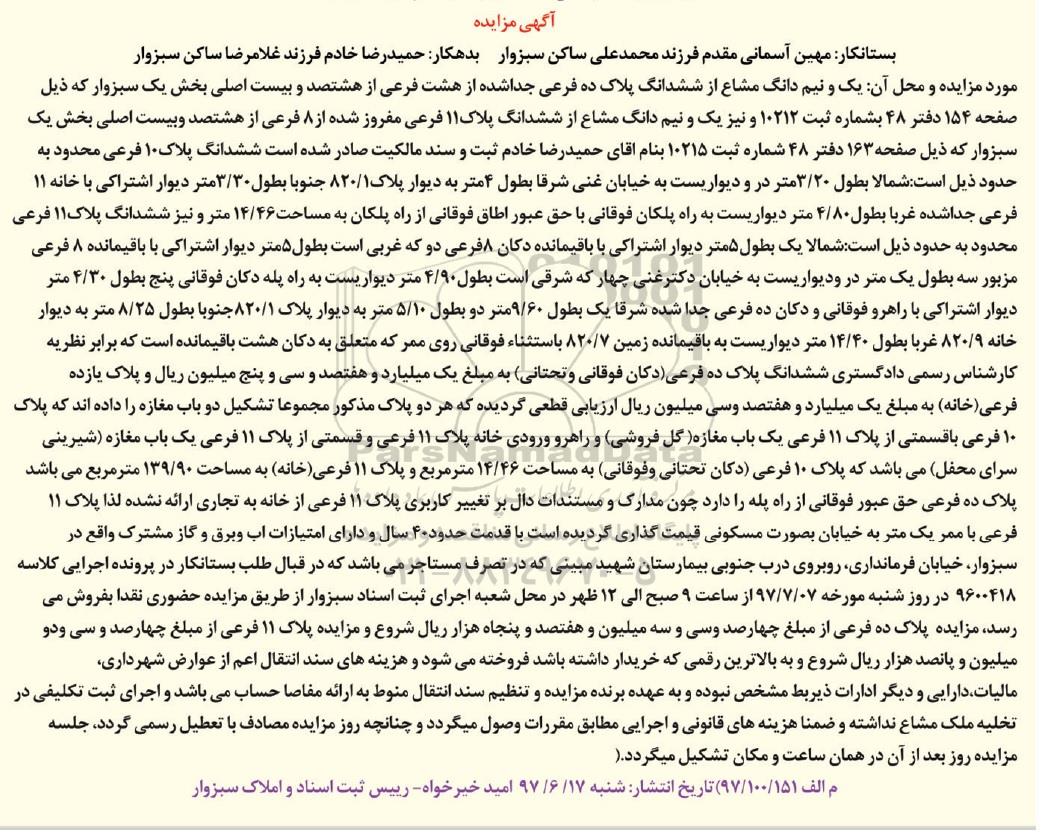 آگهی مزایده
بستانکار: مهین آسمانی مقدم فرزند محمدعلی ساکن سبزوار بدهکار: حمیدرضا خادم فرزند غلامرضا ساکن سبزوار
مورد مزایده و محل آن: یک و نیم دانگ مشاع از ششدانگ پلاک ده فرعی جداشده از هشت فرعی از هشتصد و بیست اصلی بخش یک سبزوار که ذیل
صفحه ۱۵۴ دفتر ۴۸ بشماره ثبت ۱۰۲۱۲ و نیز یک و نیم دانگ مشاع از ششدانگ پلاک۱۱ فرعی مفروز شده از۸ فرعی از هشتصد وبیست اصلی بخش یک
سبزوار که ذیل صفحه۱۶۳ دفتر ۴۸ شماره ثبت ۱۰۲۱۵ بنام اقای حمیدرضا خادم ثبت و سند مالکیت صادر شده است ششدانگ پلاک۱۰ فرعی محدود به
حدود ذیل است:شمالا بطول ۳/۲۰متر در و دیواریست به خیابان غنی شرقا بطول ۴متر به دیوار پلاک۸۲۰/۱ جنوبا بطول۳/۳۰متر دیوار اشتراکی با خانه ۱۱
فرعی جداشده غربا بطول۴/۸۰ متر دیواریست به راه پلکان فوقانی با حق عبور اطاق فوقانی از راه پلکان به مساحت۱۴/۴۶ متر و نیز ششدانگ پلاک۱۱ فرعی
محدود به حدود ذیل است:شمالا یک بطول۵متر دیوار اشتراکی با باقیمانده دکان ۸فرعی دو که غربی است بطول۵متر دیوار اشتراکی با باقیمانده ۸ فرعی
مزبور سه بطول یک متر در ودیواریست به خیابان دکترغنی چهار که شرقی است بطول۴/۹۰ متر دیواریست به راه پله دکان فوقانی پنج بطول ۴/۳۰ متر
دیوار اشتراکی با راهرو فوقانی و دکان ده فرعی جدا شده شرقا یک بطول ۹/۶۰متر دو بطول ۵/۱۰ متر به دیوار پلاک ۸۲۰/۱جنوبا بطول ۸/۲۵ متر به دیوار
خانه ۸۲۰/۹ غربا بطول ۱۴/۴۰ متر دیواریست به باقیمانده زمین ۸۲۰/۷ باستثناء فوقانی روی ممر که متعلق به دکان هشت باقیمانده است که برابر نظریه
کارشناس رسمی دادگستری ششدانگ پلاک ده فرعی(دکان فوقانی وتحتانی) به مبلغ یک میلیارد و هفتصد و سی و پنج میلیون ریال و پلاک یازده
فرعی(خانه) به مبلغ یک میلیارد و هفتصد وسی میلیون ریال ارزیابی قطعی گردیده که هر دو پلاک مذکور مجموعا تشکیل دو باب مغازه را داده اند که پلاک
۱۰ فرعی باقسمتی از پلاک ۱۱ فرعی یک باب مغازه( گل فروشی) و راهرو ورودی خانه پلاک ۱۱ فرعی و قسمتی از پلاک ۱۱ فرعی یک باب مغازه (شیرینی
سرای محفل) می باشد که پلاک ۱۰ فرعی (دکان تحتانی وفوقانی) به مساحت ۱۴/۴۶ مترمربع و پلاک ۱۱ فرعی(خانه) به مساحت ۱۳۹/۹۰ مترمربع می باشد
پلاک ده فرعی حق عبور فوقانی از راه پله را دارد چون مدارک و مستندات دال بر تغییر کاربری پلاک ۱۱ فرعی از خانه به تجاری ارائه نشده لذا پلاک ۱۱
فرعی با ممر یک متر به خیابان بصورت مسکونی قیمت گذاری گردیده است با قدمت حدود۴۰ سال و دارای امتیازات اب وبرق و گاز مشترک واقع در
سبزوار، خیابان فرمانداری، روبروی درب جنوبی بیمارستان شهید مبینی که در تصرف مستاجر می باشد که در قبال طلب بستانکار در پرونده اجرایی کلاسه
۹۶۰۰۴۱۸ در روز شنبه مورخه ۹۷/۷/۰۷ از ساعت ۹ صبح الی ۱۲ ظهر در محل شعبه اجرای ثبت اسناد سبزوار از طریق مزایده حضوری نقدا بفروش می
رسد، مزایده پلاک ده فرعی از مبلغ چهارصد وسی و سه میلیون و هفتصد و پنجاه هزار ریال شروع و مزایده پلاک ۱۱ فرعی از مبلغ چهارصد و سی ودو
میلیون و پانصد هزار ریال شروع و به بالاترین رقمی که خریدار داشته باشد فروخته می شود و هزینه های سند انتقال اعم از عوارض شهرداری،
مالیات،دارایی و دیگر ادارات ذیربط مشخص نبوده و به عهده برنده مزایده و تنظیم سند انتقال منوط به ارائه مفاصا حساب می باشد و اجرای ثبت تکلیفی در
تخلیه ملک مشاع نداشته و ضمنا هزینه های قانونی و اجرایی مطابق مقررات وصول میگردد و چنانچه روز مزایده مصادف با تعطیل رسمی گردد، جلسه
مزایده روز بعد از آن در همان ساعت و مکان تشکیل میگردد.(
م الف ۹۷/۱۰۰/۱۵۱)تاریخ انتشار: شنبه ۱۷/ ۶/ ۹۷ امید خیرخواه- رییس ثبت اسناد و املاک سبزوار
ParsNamadData
۰۲۱-۸۸۳۴۹۶۷۰-۵